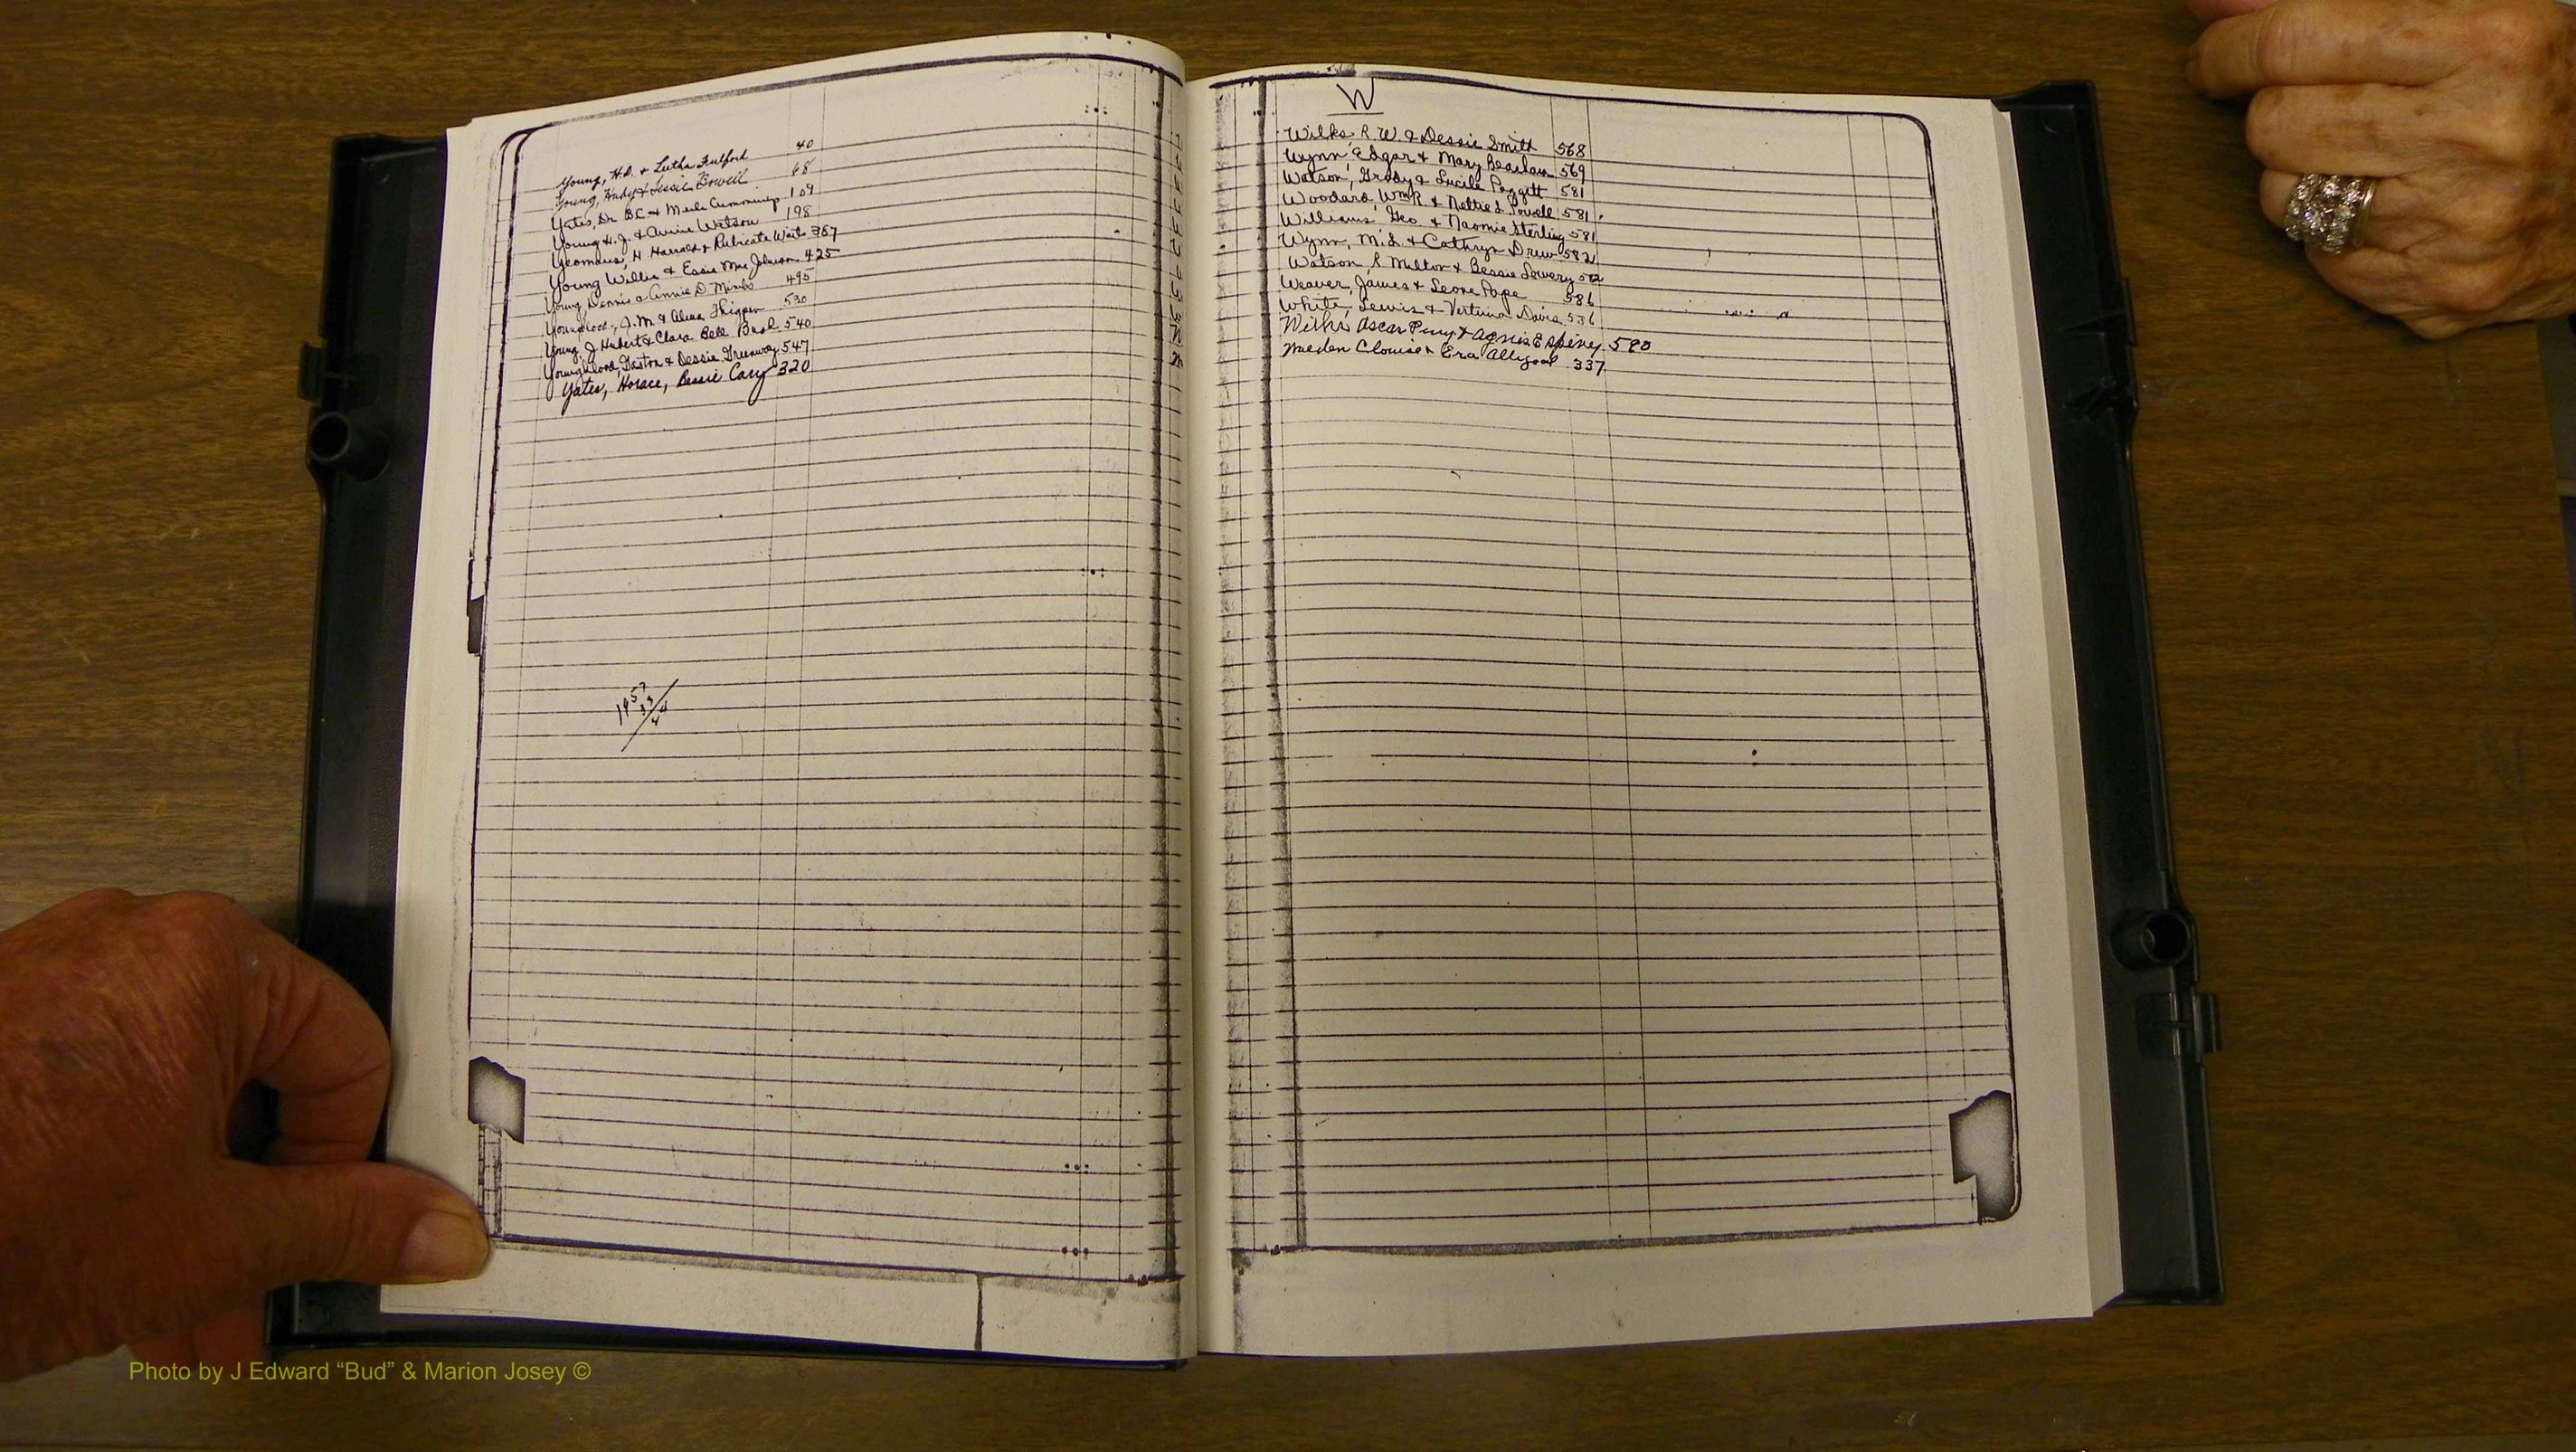 Young, H.D. & Lutha Fulford 40
Young, & Jessie Powell 68
Yates, Dr BC & Merle Cummings 109
Young H.J. & Annie Watson 198
Yeomans, H Harrold & Rubicate Waits 367
Young Willie & Essie Mae Johnson 425
Young, Dennis & Annie D. Mimbs 495
Youngblood, J.M. & Alma Thigpen 530
Young, J Hubert & Clara Bell Beal 540
Youngblood, Gaston & Dessie Greenway 547
Yates, Horace, Bessie Cary 320
1957
W
Wilks, R.W. & Dessie Smith 568
Wynn, Edgar & Mary Beacham 569
Watson, Grady & Lucile Padgett 581
Woodard, WmR & Nettie L Powell 581
Williams Geo. & Naomie Sterling 581
Wynn, M.L. & Cathryn Drew 582
Watson, R Milton & Bessie Lowery 582
Weaver, James & Leone Pope 586
White, Lewis & Davis 586
Wilks Oscar Perry & Agnes E Spivey 590
Clouise & Era Alligood 337
Photo by J Edward “Bud” & Marion Josey ©